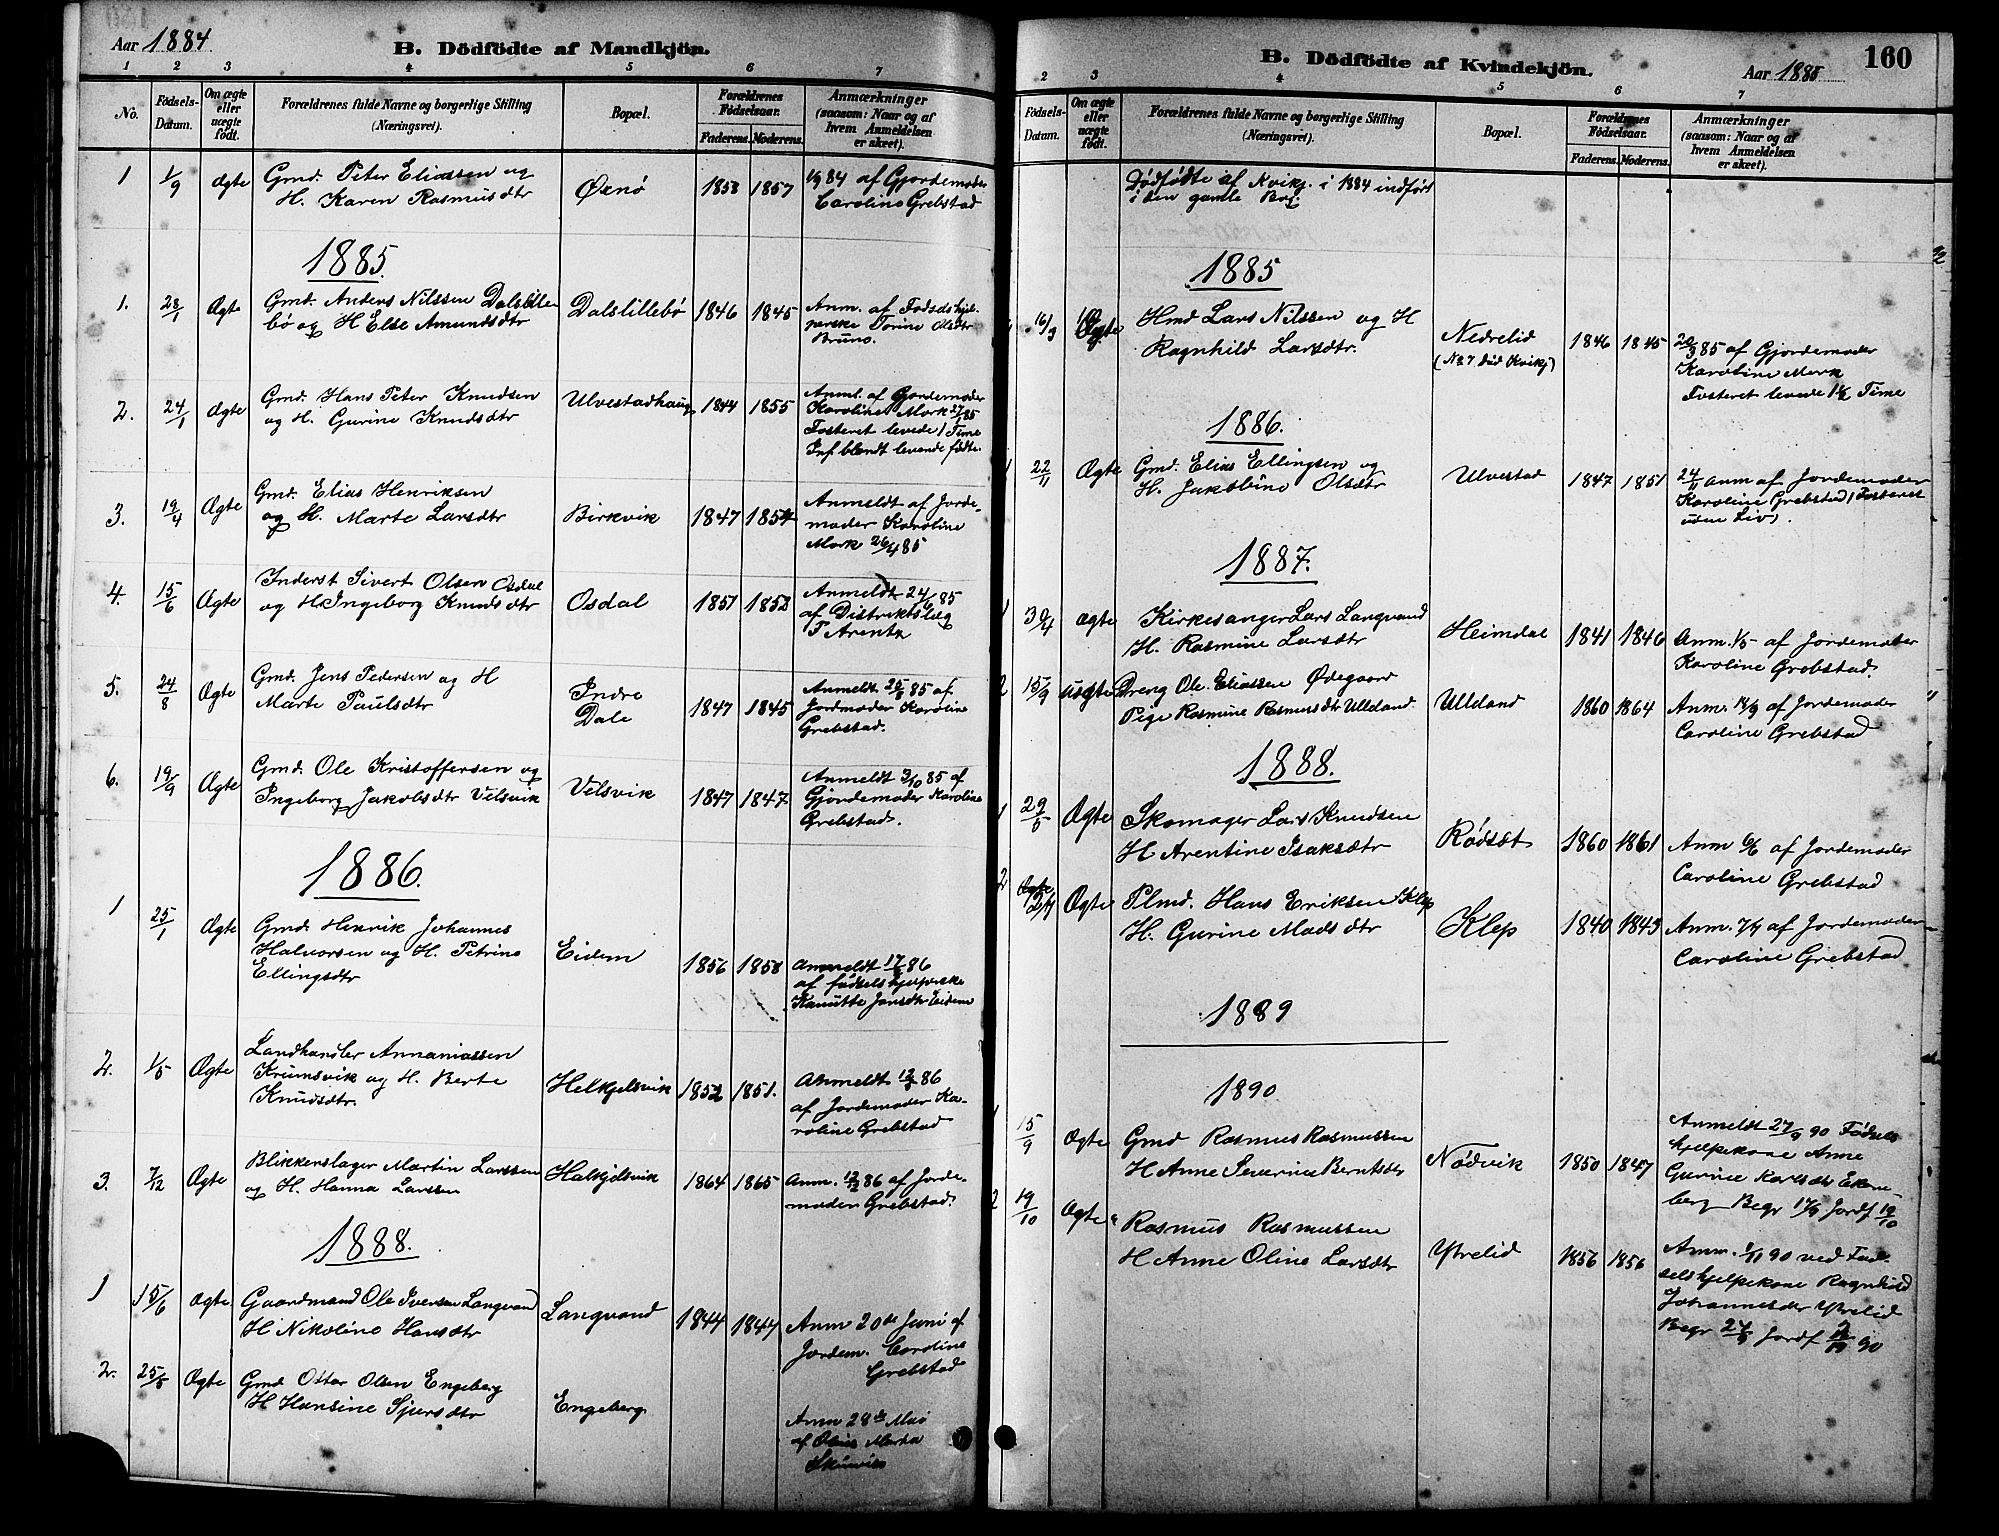 Aar 1884
B. Dödfödte af Mandkjön.
1 2 3 4 5 6 7
No.
Födsels-
Datum.
Om ægte
eller
uægte
födt.
Forældrenes fulde Navne og borgerlige Stilling
(Næringsvei).
Bopæl.
Forældrenes
Födselsaar.
Faderens. Moderens.
Anmærkninger
(saasom: Naar og af
hvem Anmeldelsen
er skeet).
1 1/9 Ægte Gmd. Peter Eliassen og
H. Karen Rasmusdtr
1853 1857
1/9 84 af Gjordemoder
Caroline Grebstad
1885.
1. 28/1 Ægte Gmd. Anders Nilssen Dalslille
bø og H Else Amundsdtr
Dalslillebø 1846 1845
Anm. af Fødselshjel-
perske Torine Olsdtr
Bruno.
2. 24/1 Ægte Gmd. Hans Peter Knudsen
og H. Gurine Knudsdtr
Ulvestadhaug 1844 1855
Anm. af Gjordemoder
Karoline Mork 27/1 85
Fosteret levede 1 Time
Inf blandt levende fødte.
3. 19/4 Ægte Gmd. Elias Henriksen
og H. Marte Larsdtr
Birkvik 1847 1854
Anmeldt af Jorde-
moder Karoline
Mork 26/4 85
4. 15/6 Ægte Inderst Sivert Olsen Osdal
og H. Ingeborg Knudsdtr
Osdal 1851 1853
Anmeldt 24/6 85
af Distriktslæg
P Arentz
5. 24/8 Ægte Gmd. Jens Pedersen og H
Marte Paulsdtr
Indre
Dale 1847 1845
Anmeldt 25/8 85 af
Jordmoder Karoline
Grebstad.
6. 19/9 Ægte Gmd. Ole Kristoffersen og
Ingeborg Jakobsdtr Velsvik
Velsvik 1847 1847
Anmeldt 3/10 85 af
Gjordemoder Karoline
Grebstad.
1886.
1 25/1 Ægte Gmd. Henrik Johannes
Halvorsen og H. Petrine
Ellingsdtr
Eidem 1856 1858
Anmeldt 86
af fødselshjelperske
Jonsdtr Eidem
2. 1/5 Ægte Landhandler Annaniassen
Krumsvik og H. Berte
Knudsdtr.
Helkjelsvik 1852 1851.
Anmeldt 86
af Jordemoder Ka-
roline Grebstad
3. 7/12 Ægte Blikkenslager Martin Larssen
og H. Hanna Larssen
Halkjelsvik 1864 1865
Anm. 12/12 86 af Jorde-
moder Grebstad.
1888.
1 15/6 Ægte. Gaardmand Ole Iversen Langvand
H Nikoline Hansdtr
Langvand 1844 1847
Anm 20de Juni af
Jordem. Caroline
Grebstad
2. 25/5 Ægte Gmd Ottar Olsen Engeberg
H Hansine Sjursdtr
Engeberg
Anm 28de Mai
af Marta
B. Dödfödte af Kvindekjön.
Aar 1885
160
2 3 4 5 6 7
Födsels-
Datum.
Om ægte
eller
uægte
födt.
Forældrenes fulde Navne og borgerlige Stilling
(Næringsvei).
Bopæl.
Forældrenes
Födselsaar.
Faderens. Moderens.
Anmærkninger
(saasom: Naar og af
hvem Anmeldelsen
er skeet).
Dødfødte af Kvikj. i 1884 indført
i den gamle Bog.
1885
16/3 Ægte Hmd Lars Nilssen og H
Ragnhild Larsdtr.
Nedrelid
(No 7 død Kvikj)
1846 1845
20/3 85 af Gjordemoder
Karoline Mork
Fosteret levede 1 1/2 Time
1886.
1 22/11 Ægte Gmd. Elias Ellingsen og
H. Jakobine Olsdtr
Ulvestad 1847 1851
24/11 Anm af Jordemoder
Karoline Grebstad (Fosteret
uden Liv).
1887.
1 30/4 Ægte Kirkesanger Lars Langvand
H. Rasmine Larsdtr
Heimdal 1841 1846
Anm. 1/5 af Jordemoder
Karoline Grebstad.
2 15/9 Uægte Dreng Ole Eliassen Ødegaard
Pige Rasmine Rasmusdtr Ulldand
Ulldand 1860 1864
Anm. 18/9 af Jordemoder
Caroline Grebstad
1888.
1 29/5 Ægte Skomager Lars Knudsen
H Arentine Isaksdtr
Rødsæt 1860 1861
Anm 6/6 af Jordemoder
Caroline Grebstad
2 Ægte Plmd. Hans Eriksen Klep
H. Gurine Madsdtr
Klep 1840 1843
Anm. 7/7 af Jordemoder
Caroline Grebstad
1889
1890
1 15/9 Ægte Gmd Rasmus Rasmussen
H Anne Severine Berntsdtr
Nødvik 1850 1847
Anmeldt 27/9 90 Fødsels
hjelpekone Anne
Gurine Karlsdtr Ekne-
berg Begr 17/9 Jordf 19/10
2 19/10 Ægte Rasmus Rasmussen
H Anne Oline Larsdtr
Ytrelid 1856 1856
Anm. 1/11 90 ved Fød-
selshjelpekone Ragnhild
Johannesdtr Ytrelid
Begr Jordf 90